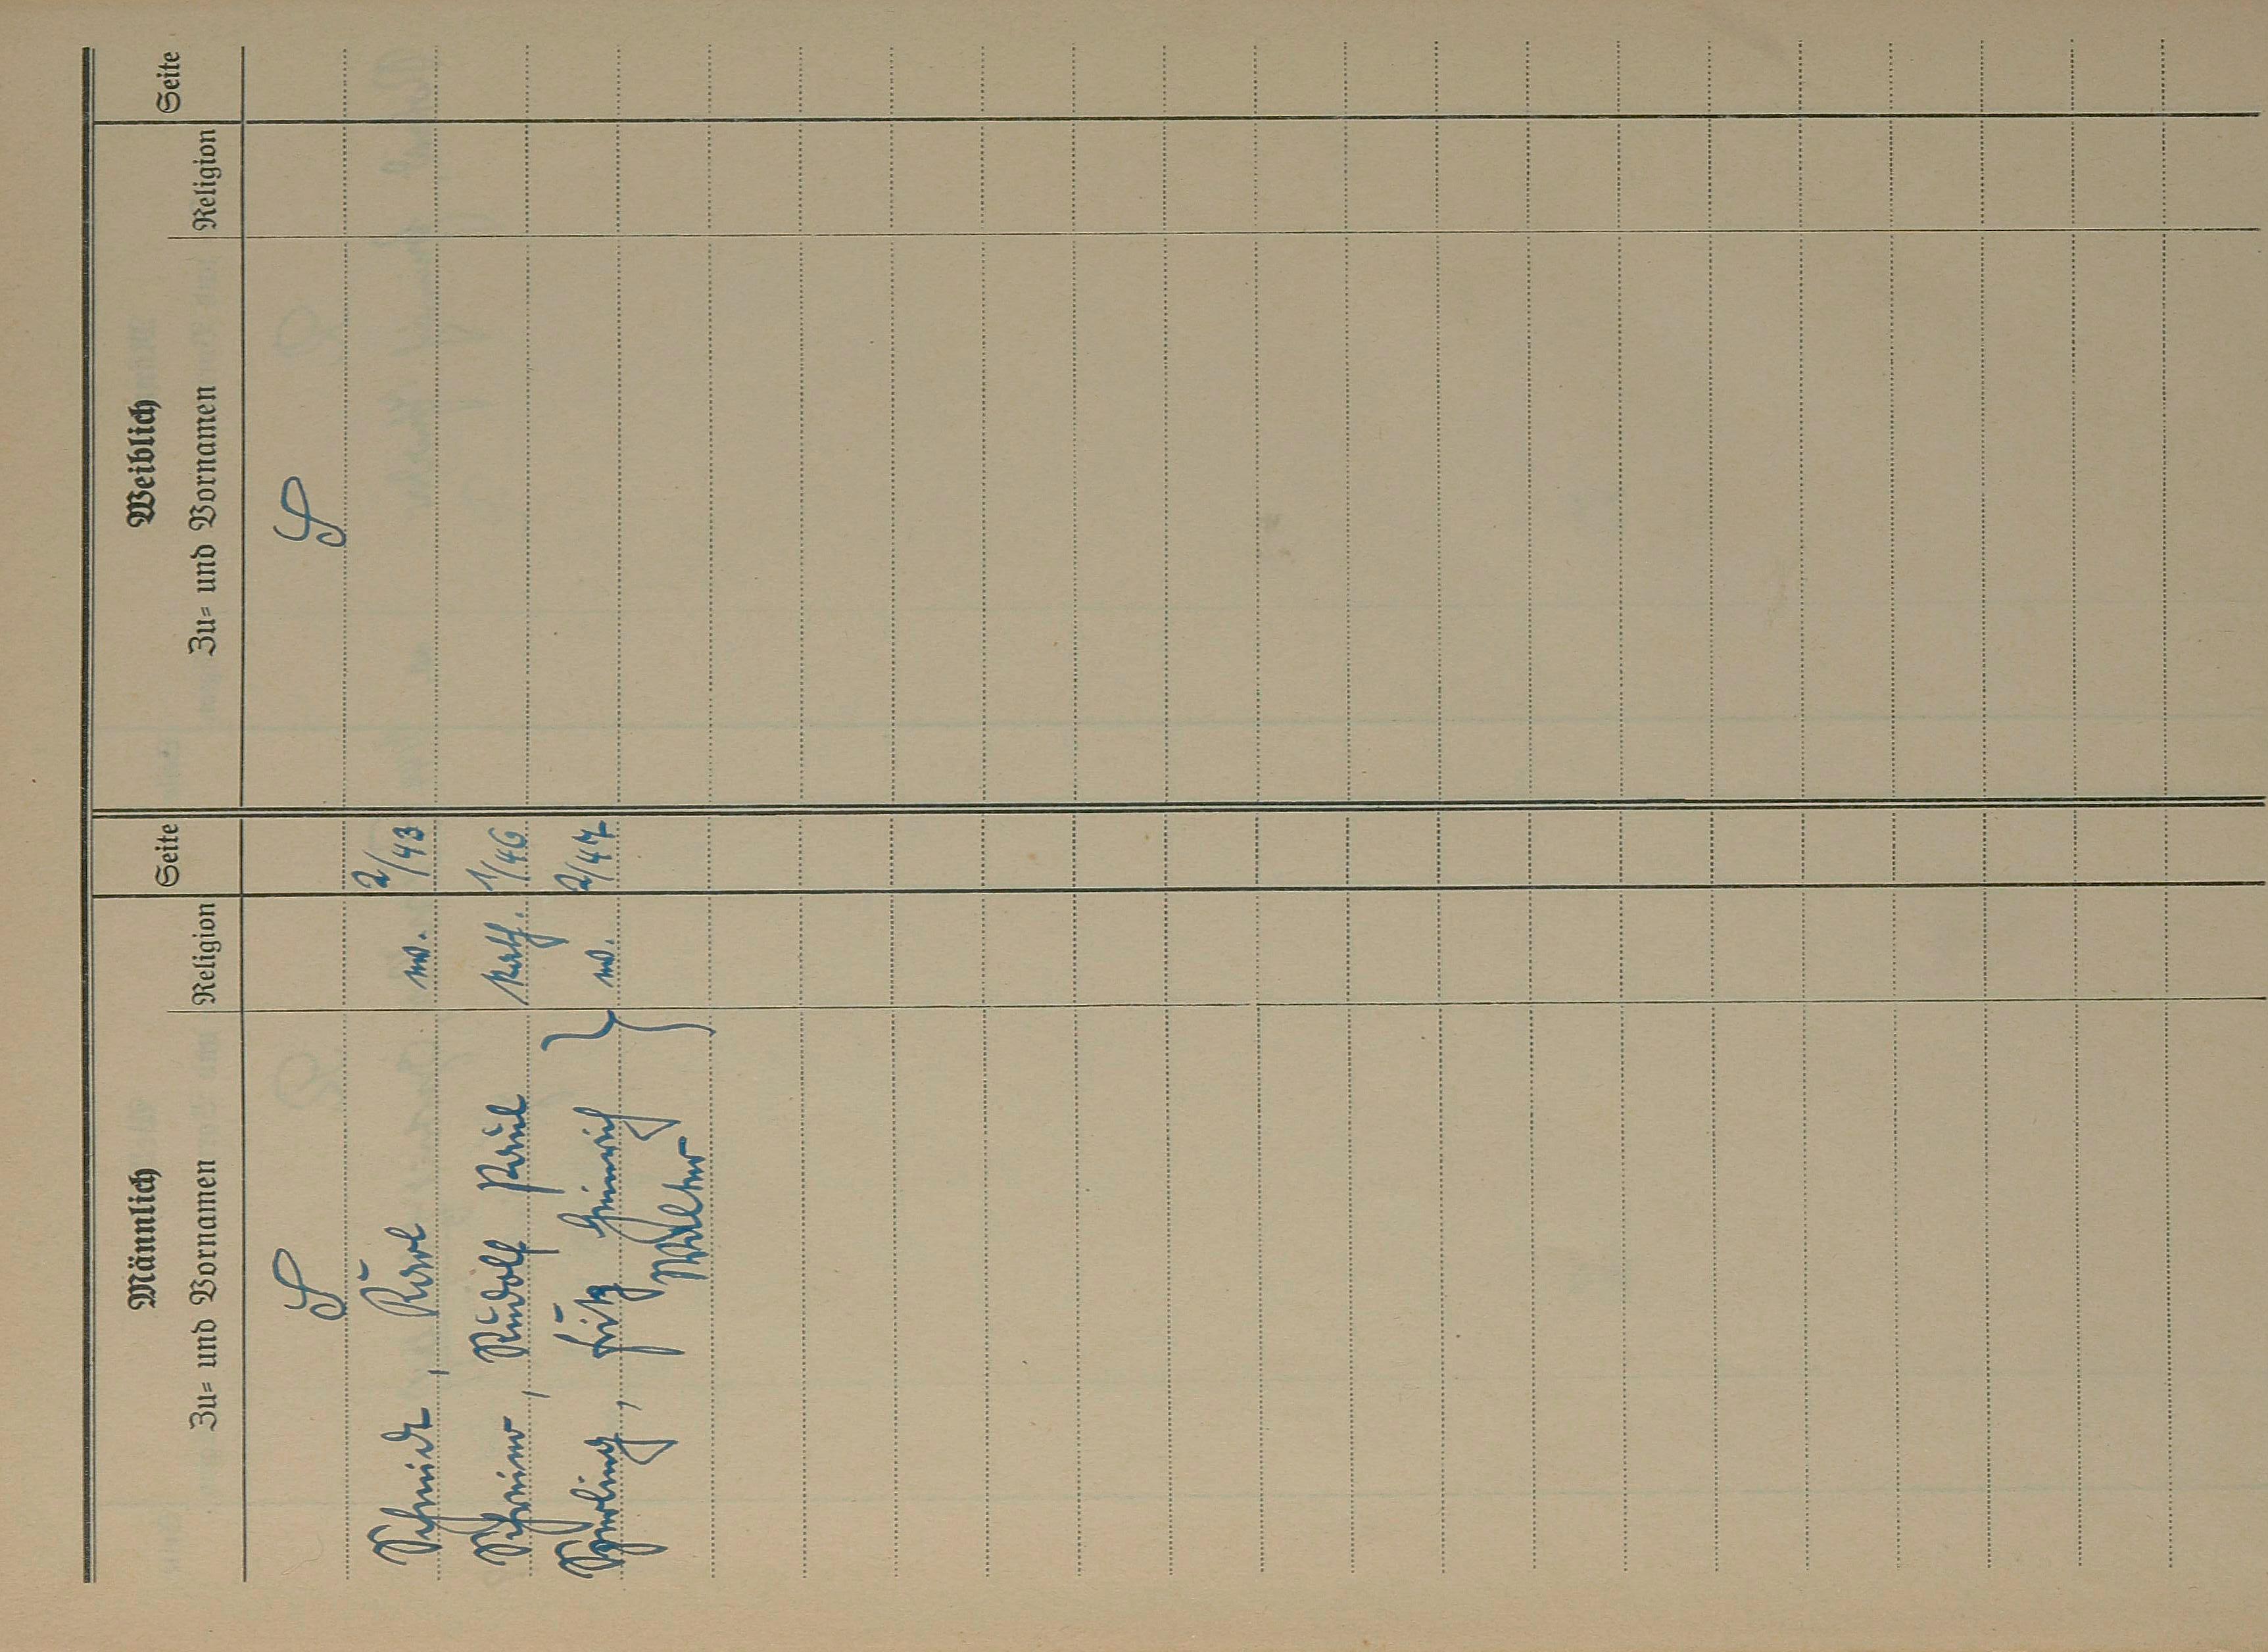 Männlich
Zu= und Vornamen Religion Seite
Weiblich
Zu= und Vornamen Religion Seite
S S
Schmidt, Karl ev. 2/43
Rudolf Paul Kath. 1/46
Sperling, Fritz Heinrich } ev. 2/47
Walter